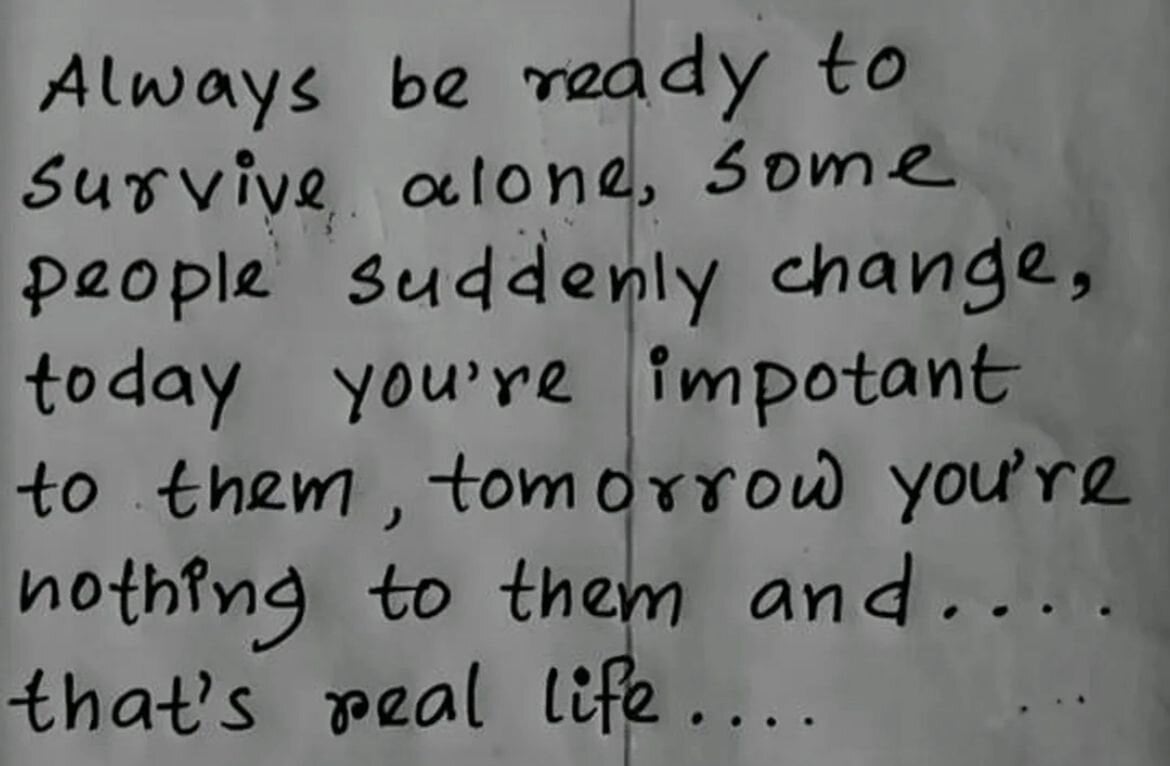 Always be ready to
survive alone, some
people suddenly change,
today you're impotant
to them, tomorrow you're
nothing to them and....
that's real life....